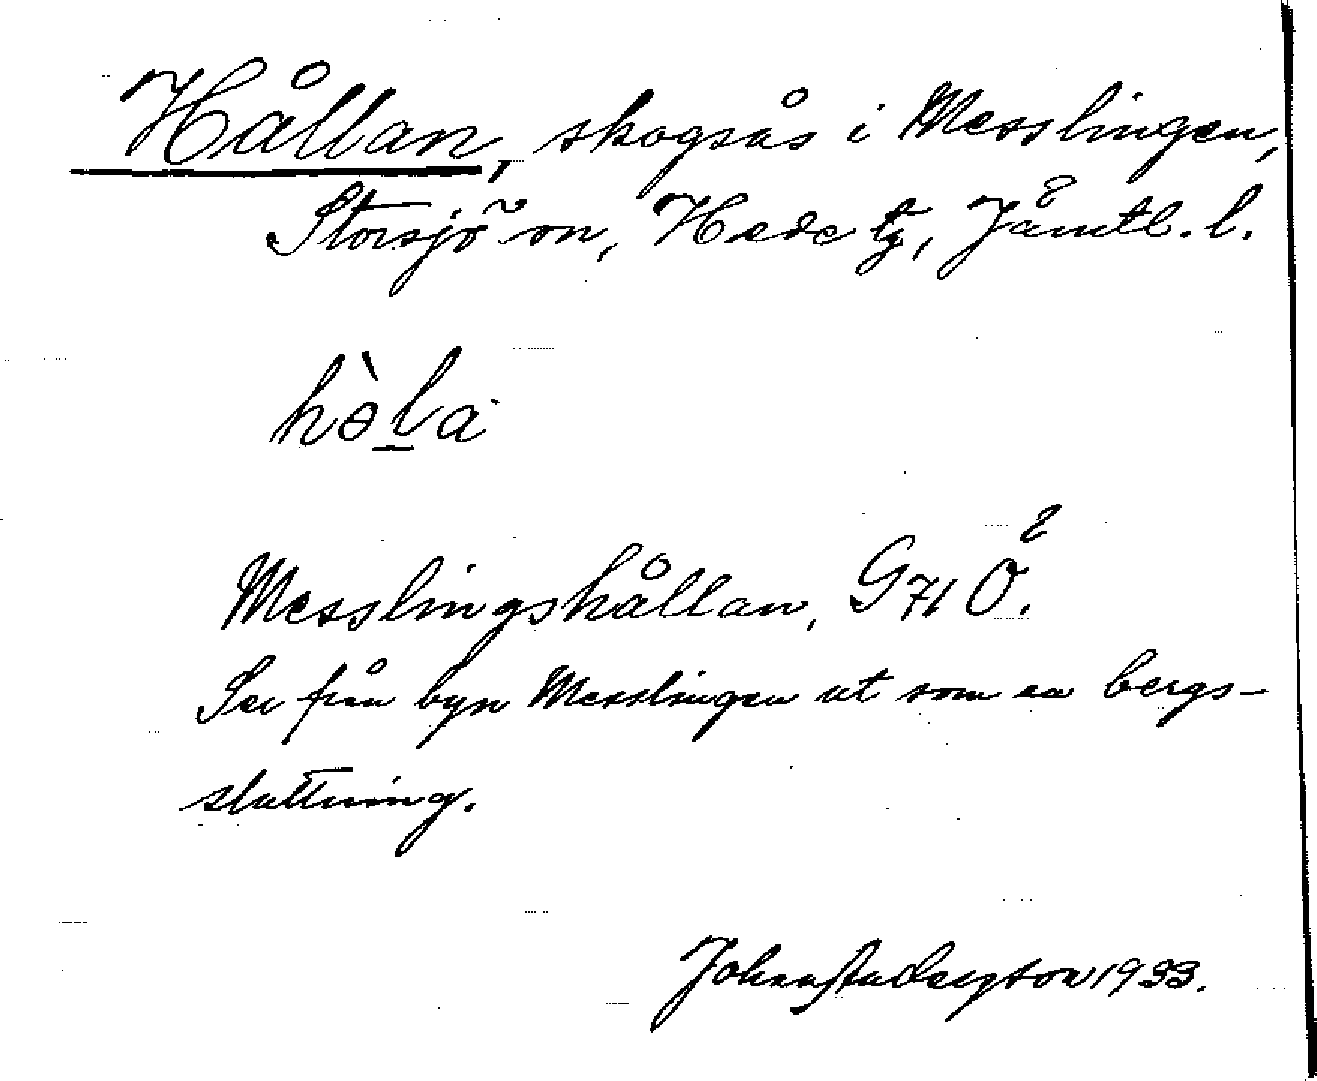 Hållan, skogsås i Messlingen,
Storsjö sn, Hede tg, Jämtl. l.
hòḻa
Messlingshållan, G 71 Ö.
Ser från byn Messlingen ut som en bergs-
sluttning.
1933.